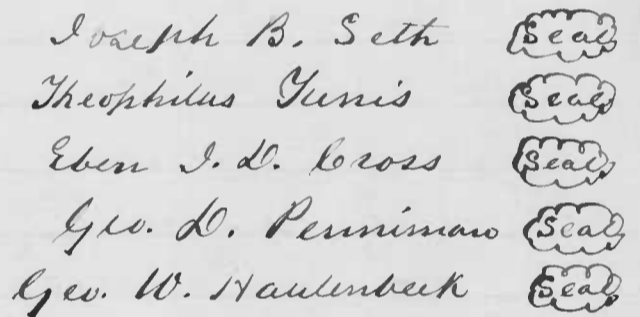 Joseph B. Seth Seal
Theophilus Tunis Seal
Eben J. D. Cross Seal
Geo. D. Penniman Seal
Geo. W. Haulenbeek Seal